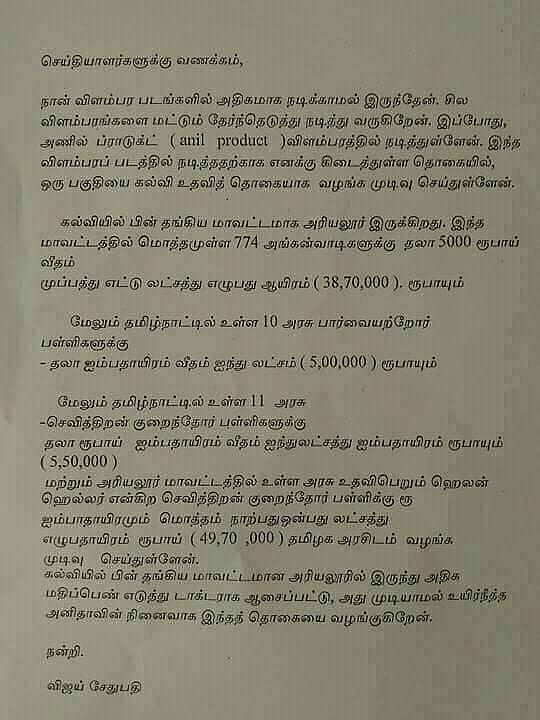 செய்தியாளர்களுக்கு வணக்கம்,
நான் விளம்பர படங்களில் அதிகமாக நடிக்காமல் இருந்தேன். சில
விளம்பரங்களை மட்டும் தேர்ந்தெடுத்து நடித்து வருகிறேன். இப்போது,
அணில் ப்ராடுக்ட் ( anil product )விளம்பரத்தில் நடித்துள்ளேன். இந்த
விளம்பரப் படத்தில் நடித்ததற்காக எனக்கு கிடைத்துள்ள தொகையில்,
ஒரு பகுதியை கல்வி உதவித் தொகையாக வழங்க முடிவு செய்துள்ளேன்.
கல்வியில் பின் தங்கிய மாவட்டமாக அரியலூர் இருக்கிறது. இந்த
மாவட்டத்தில் மொத்தமுள்ள 774 அங்கன்வாடிகளுக்கு தலா 5000 ரூபாய்
வீதம்
முப்பத்து எட்டு லட்சத்து எழுபது ஆயிரம் ( 38,70,000 ). ரூபாயும்
மேலும் தமிழ்நாட்டில் உள்ள 10 அரசு பார்வையற்றோர்
பள்ளிகளுக்கு
- தலா ஐம்பதாயிரம் வீதம் ஐந்து லட்சம் ( 5,00,000 ) ரூபாயும்
மேலும் தமிழ்நாட்டில் உள்ள 11 அரசு
-செவித்திறன் குறைந்தோர் பள்ளிகளுக்கு
தலா ரூபாய் ஐம்பதாயிரம் வீதம் ஐந்துலட்சத்து ஐம்பதாயிரம் ரூபாயும்
( 5,50,000 )
மற்றும் அரியலூர் மாவட்டத்தில் உள்ள அரசு உதவிபெறும் ஹெலன்
ஹெல்லர் என்கிற செவித்திறன் குறைந்தோர் பள்ளிக்கு ரூ
ஐம்பாதாயிரமும் மொத்தம் நாற்பதுஒன்பது லட்சத்து
எழுபதாயிரம் ரூபாய் ( 49,70 ,000 ) தமிழக அரசிடம் வழங்க
முடிவு செய்துள்ளேன்.
கல்வியில் பின் தங்கிய மாவட்டமான அரியலூரில் இருந்து அதிக
மதிப்பெண் எடுத்து டாக்டராக ஆசைப்பட்டு, அது முடியாமல் உயிர்நீத்த
அனிதாவின் நினைவாக இந்தத் தொகையை வழங்குகிறேன்.
நன்றி.
விஜய் சேதுபதி